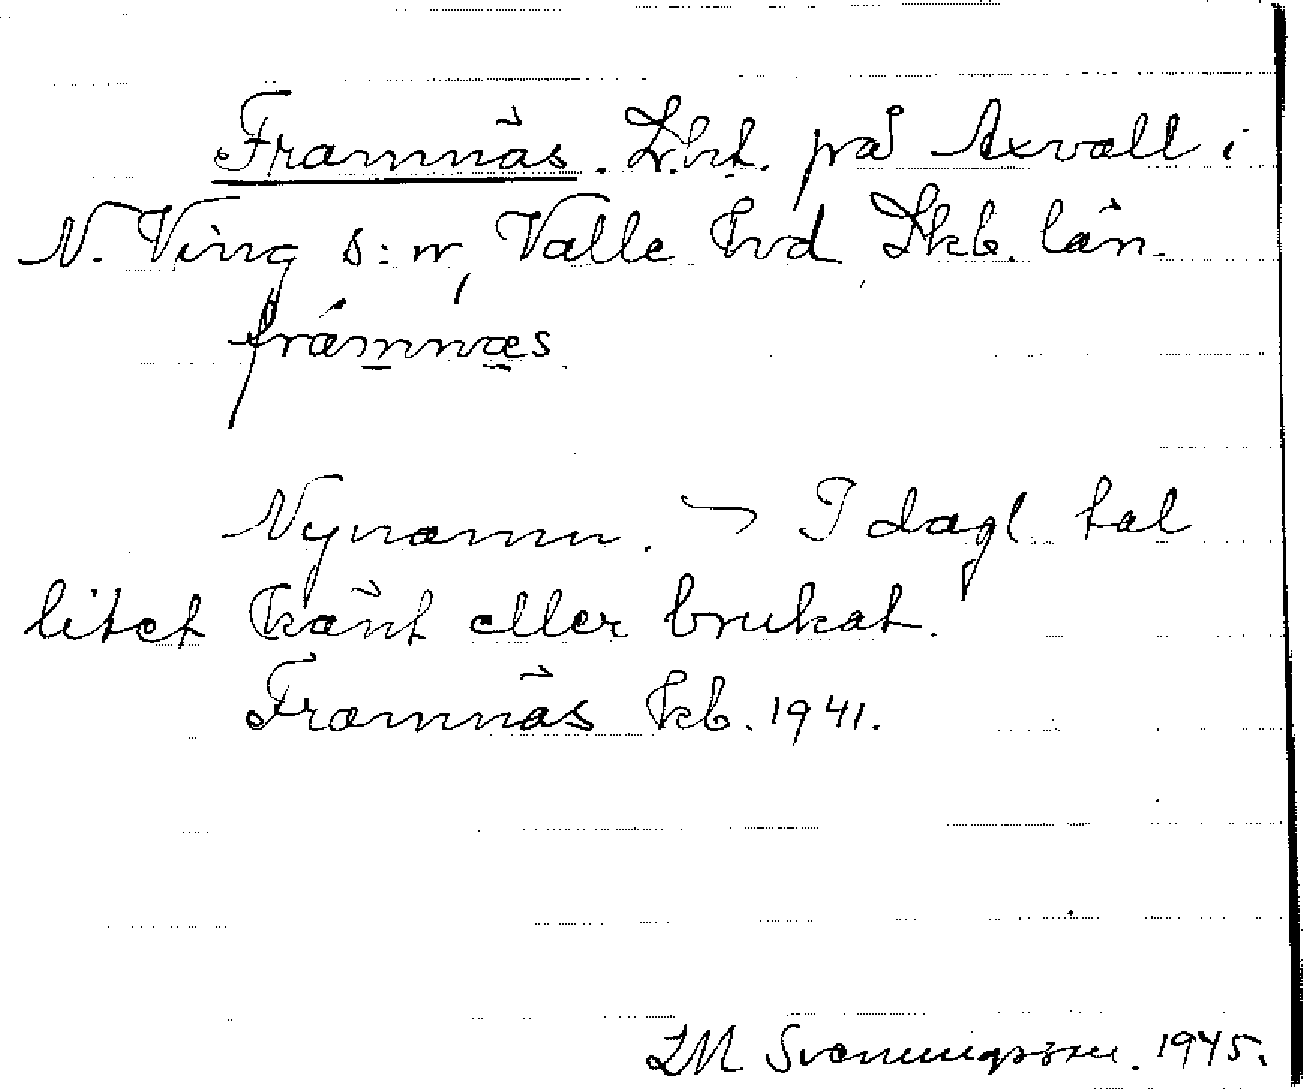 Framnäs. Lht. på Axvall i
N. Ving s:n, Valle hd Skb. län.
framnæs
Nynamn. I dagl tal
litet känt eller brukat.
Framnäs kb. 1941.
LM Svenungsson. 1945.